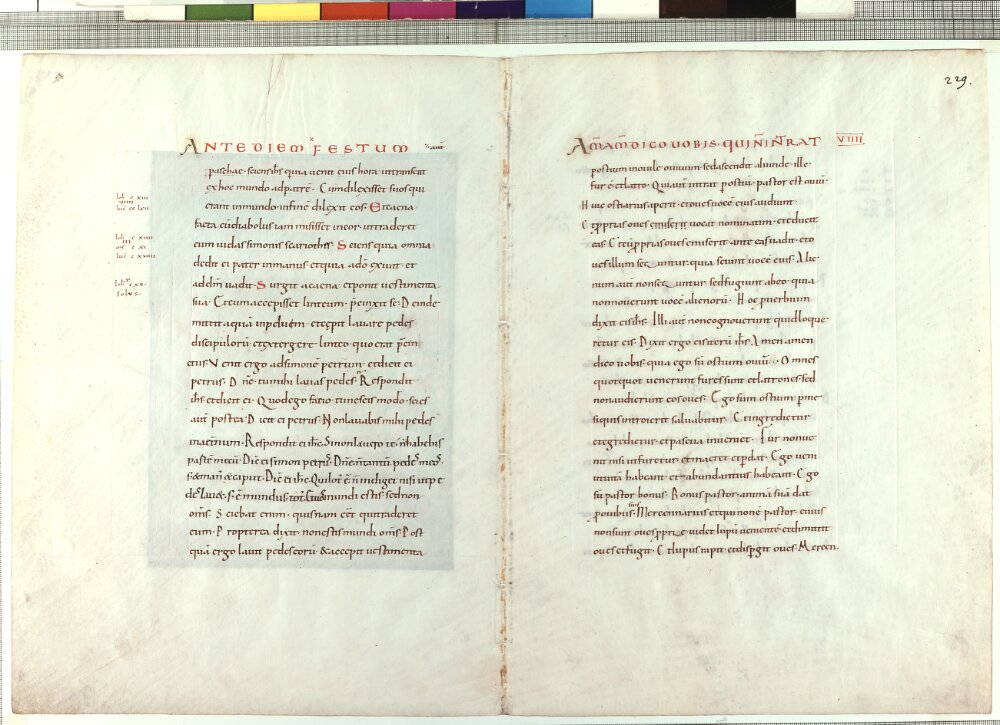 ANTE DIEM FESTUM
paschae· sciens ihs quia venit eius hora· ut transeat
ex hoc mundo ad patrē· Cum dilexisset suos qui
erant in mundo· in finē dilexit eos· Et cena
facta cū diabolus iam misisset in cor· ut traderet
eum iudas simonis scariothis· Sciens quia omnia
dedit ei pater in manus et quia a dō exivit· et
ad dm̄ vadit· Surgit a cena· et ponit vestimenta
sua· Et cum accepisset linteum· p̄cinxit se· Deinde
mittit aquā in peluem· et cepit lavare pedes
discipulorū· et extergere linteo· quo erat p̄cin
ctus· Venit ergo ad simonē petrum· et dicit ei
petrus· Dn̄e· tu mihi lavas pedes· Respondit
ihs et dicit ei· Quod ego facio· tu nescis modo· scies
aut̄ postea· Dicit ei petrus· Non lavabis mihi pedes
in aeternum· Respondit ei ihc· Si non lavero te· n̄ habebis
partē mecū· Dic̄ ei simon petrus· Dn̄e n̄ tantū pedes meos·
sed & man' & caput· Dic̄ ei ihc· Qui lot' ē n̄ indiget nisi ut pe
des lavet· s; ē mundus tot'· Et vos mundi estis sed non
om̄s· Sciebat enim· quisnam eēt qui traderet
eum· Propterea dixit· non estis mundi om̄s· Post
quā ergo lavit pedes eorū & accepit vestimenta
229.
AM̄ AM̄ DICO VOBIS· QUI N̄ INTRAT VIIII
p ostium in ovile ovium· sed ascendit aliunde· ille
fur ē et latro· Qui aut̄ intrat p ostiū· pastor est oviū·
Huic ostiarius aperit· et oves vocē eius audiunt·
Et pprias oves vocat nominatim· et educit
eas· Et cū pprias oves emiserit· ante eas vadit· et o
ves illum secuntur· quia sciunt vocē eius· Alie
num aut̄ non secuntur· sed fugiunt ab eo· quia
non noverunt vocē alienorū· Hoc pverbium
dixit eis ihs· Illi aut̄ non cognoverunt quid loque
retur eis· Dixit ergo eis iterū ihs· Amen amen
dico vobis· quia ego sū ostium oviū· Omnes
quotquot venerunt fures sunt et latrones· sed
non audierunt eos oves· Ego sum ostium· p me
si quis introierit salvabitur· Et ingredietur
et egredietur· et pascua inveniet· Fur non ve
nit nisi ut furetur· et mactet et pdat· Ego veni
ut vitā habeant· et abundantius habeant· Ego
sū pastor bonus· Bonus pastor· animā suā dat
p ovibus suis· Mercennarius et qui non ē pastor· cuius
non sunt oves pprie· videt lupū venientē· et dimittit
oves et fugit· Et lupus rapit· et dispgit oves· Mercen